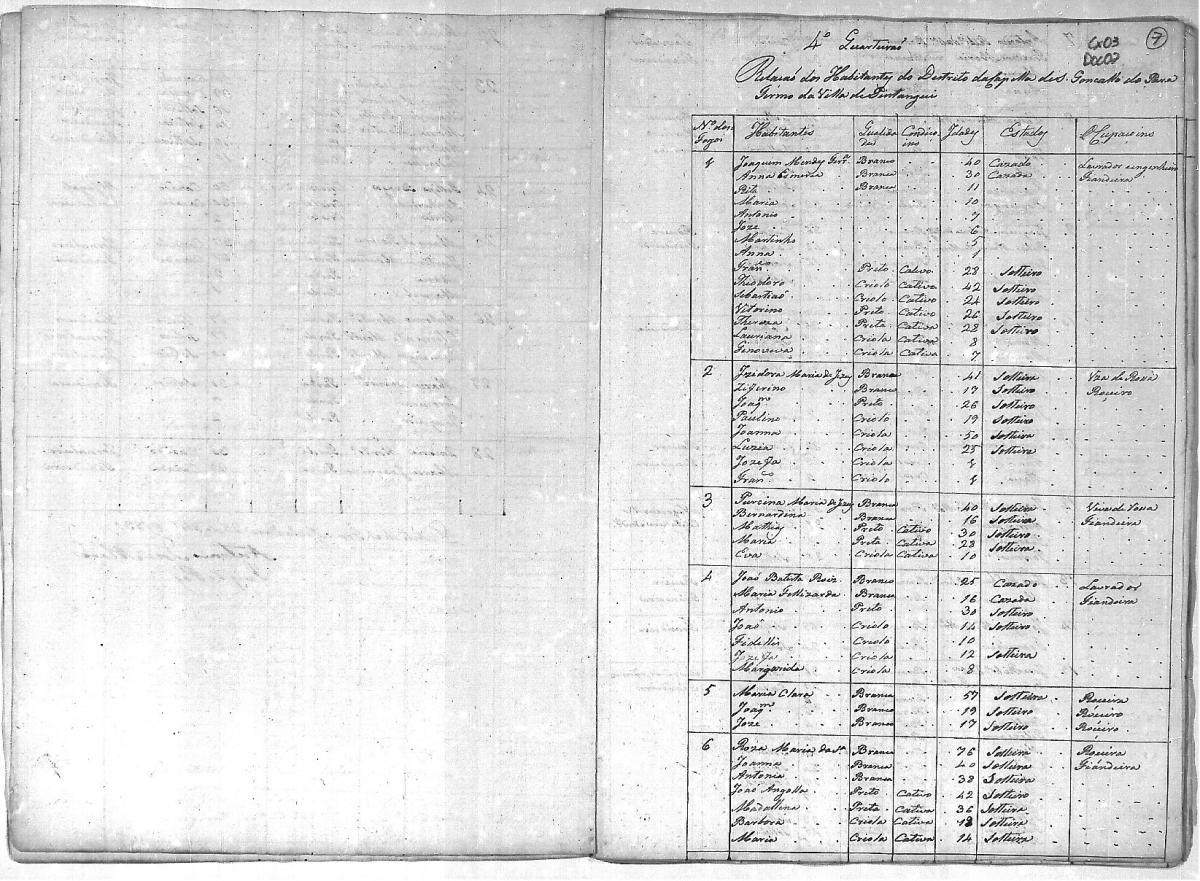 4º Quarteiraõ
Cx03
Doc02
7
Relacaõ dos Habitantes do Destrito da Capella de S. Goncallo do Pará
Termo da Villa de Pintangui
Nº dos Fogos Habitantes Qualida des Condico ins Idades Estados Ocupaçoins
1 Joaquim Mendes Branco 40 Cazado Lavrador
Anna Esmeria Branca 30 Cazada Fiandeira
Rita Branca 11
Maria 10
Antonio 7
Joze 6
Martinho 5
Anna 1
Franco Preto Cativo 28 Solteiro
Thiodoro Criolo Cativo 42 Solteiro
Sebastiaõ Criolo Cativo 24 Solteiro
Vitorino Preto Cativo 26 Solteiro
Thereza Preta Cativa 28 Solteiro
Lauriana Criola Cativa 8
Genoveva Criola Cativa 7
2 Izidora Maria de Jezus Branca 41 Solteira Viva de Rossa
Ziferino Branco 17 Solteiro Roceiro
Joaqm Preto 26 Solteiro
Paulino Criolo 19 Solteiro
Joanna Criola 50 Solteira
Luzia Criola 25 Solteira
Jozefa Criola
Franco Criolo
3 Purcina Maria de Jezus Branca 40 Solteira Vive de Rossa
Bernardina Branca 16 Solteira Fiandeira
Mathias Preto Cativo 30 Solteiro
Maria Preta Cativa 28 Solteira
Eva Criola Cativa 10
4 Joaõ Batista Roiz Branco 25 Cazado Lavrador
Maria Fellizarda Branca 16 Cazada Fiandeira
Antonio Preto 30 Solteiro
Joaõ Criolo 14 Solteiro
Fidelli Criolo 10
Jozefa Criola 12 Solteira
Margarida Criola 8
5 Maria Clara Branca 57 Solteira Roceira
Joaqm Branco 19 Solteiro Roceiro
Joze Branco 17 Solteiro Roceiro
6 Roza Maria da Sª Branca 76 Solteira Roceira
Joanna Branca 40 Solteira Fiandeira
Antonia Branca 38 Solteira
Joaõ Angolla Preto Cativo 42 Solteiro
Madallena Preta Cativa 36 Solteira
Barbora Criola Cativa 18 Solteira
Maria Criola Cativa 14 Solteira